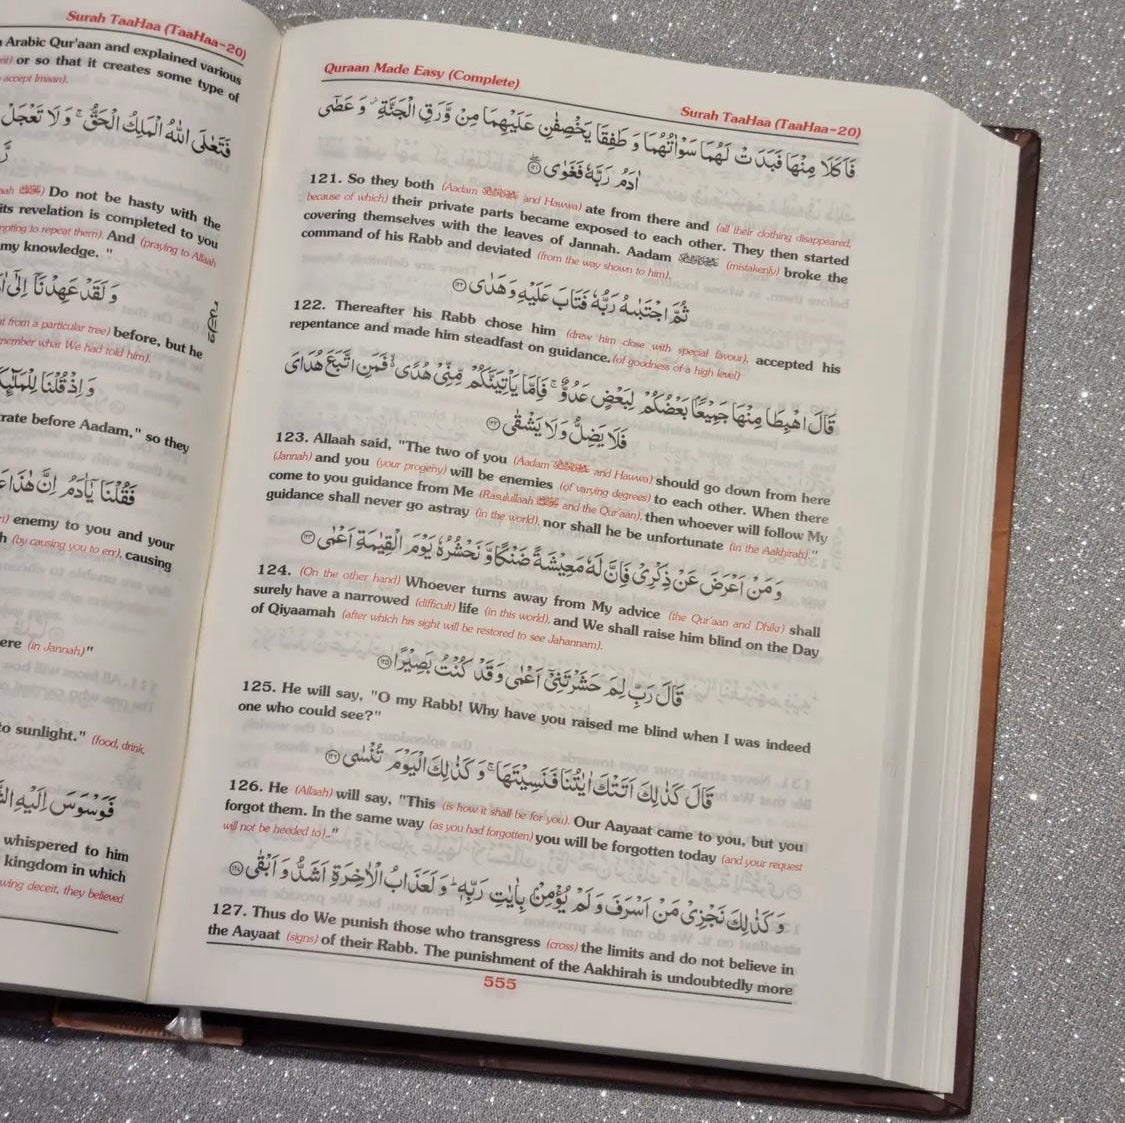 Surah TaaHaa (TaaHaa-20)
Arabic Qur'aan and explained various
or so that it creates some type of
accept Imaan).
فَتَعٰلَى اللّٰهُ الْمَلِكُ الْحَقُّ ۚ وَلَا تَعْجَلْ
Do not be hasty with the
its revelation is completed to you
to repeat them). And (praying to Allaah
my knowledge. "
وَلَقَدْ عَهِدْنَآ اِلٰٓى
from a particular tree) before, but he
what We had told him).
وَاِذْ قُلْنَا
before Aadam," so they
فَقُلْنَا يٰٓاٰدَمُ اِنَّ هٰذَا
enemy to you and your
(by causing you to err), causing
(in Jannah)"
to sunlight." (food, drink,
فَوَسْوَسَ اِلَيْهِ
whispered to him
kingdom in which
deceit, they believed
Quraan Made Easy (Complete)
Surah TaaHaa (TaaHaa-20)
فَاَكَلَا مِنْهَا فَبَدَتْ لَهُمَا سَوْاٰتُهُمَا وَطَفِقَا يَخْصِفٰنِ عَلَيْهِمَا مِنْ وَّرَقِ الْجَنَّةِ ۡ وَعَصٰٓى
اٰدَمُ رَبَّهٗ فَغَوٰى ۖ۝۱۲۱
121. So they both (Aadam and Hawwa) ate from there and (all their clothing disappeared,
because of which) their private parts became exposed to each other. They then started
covering themselves with the leaves of Jannah. Aadam (mistakenly) broke the
command of his Rabb and deviated (from the way shown to him).
ثُمَّ اجْتَبٰىهُ رَبُّهٗ فَتَابَ عَلَيْهِ وَهَدٰى ۝۱۲۲
122. Thereafter his Rabb chose him (drew him close with special favour), accepted his
repentance and made him steadfast on guidance. (of goodness of a high level)
قَالَ اهْبِطَا مِنْهَا جَمِيْعًۢا بَعْضُكُمْ لِبَعْضٍ عَدُوٌّ ۚ فَاِمَّا يَاْتِيَنَّكُمْ مِّنِّيْ هُدًى ۙ فَمَنِ اتَّبَعَ هُدَايَ
فَلَا يَضِلُّ وَلَا يَشْقٰى ۝۱۲۳
123. Allaah said, "The two of you (Aadam and Hawwa) should go down from here
(Jannah) and you (your progeny) will be enemies (of varying degrees) to each other. When there
come to you guidance from Me (Rasulullaah and the Qur'aan), then whoever will follow My
guidance shall never go astray (in the world), nor shall he be unfortunate (in the Aakhirah)."
وَمَنْ اَعْرَضَ عَنْ ذِكْرِيْ فَاِنَّ لَهٗ مَعِيْشَةً ضَنْكًا وَّنَحْشُرُهٗ يَوْمَ الْقِيٰمَةِ اَعْمٰى ۝۱۲۴
124. (On the other hand) Whoever turns away from My advice (the Qur'aan and Dhikr) shall
surely have a narrowed (difficult) life (in this world), and We shall raise him blind on the Day
of Qiyaamah (after which his sight will be restored to see Jahannam).
قَالَ رَبِّ لِمَ حَشَرْتَنِيْٓ اَعْمٰى وَقَدْ كُنْتُ بَصِيْرًا ۝۱۲۵
125. He will say, "O my Rabb! Why have you raised me blind when I was indeed
one who could see?"
قَالَ كَذٰلِكَ اَتَتْكَ اٰيٰتُنَا فَنَسِيْتَهَا ۚ وَكَذٰلِكَ الْيَوْمَ تُنْسٰى ۝۱۲۶
126. He (Allaah) will say, "This (is how it shall be for you). Our Aayaat came to you, but you
forgot them. In the same way (as you had forgotten) you will be forgotten today (and your request
will not be heeded to)."
وَكَذٰلِكَ نَجْزِيْ مَنْ اَسْرَفَ وَلَمْ يُؤْمِنْۢ بِاٰيٰتِ رَبِّهٖ ۭ وَلَعَذَابُ الْاٰخِرَةِ اَشَدُّ وَاَبْقٰى ۝۱۲۷
127. Thus do We punish those who transgress (cross) the limits and do not believe in
the Aayaat (signs) of their Rabb. The punishment of the Aakhirah is undoubtedly more
555